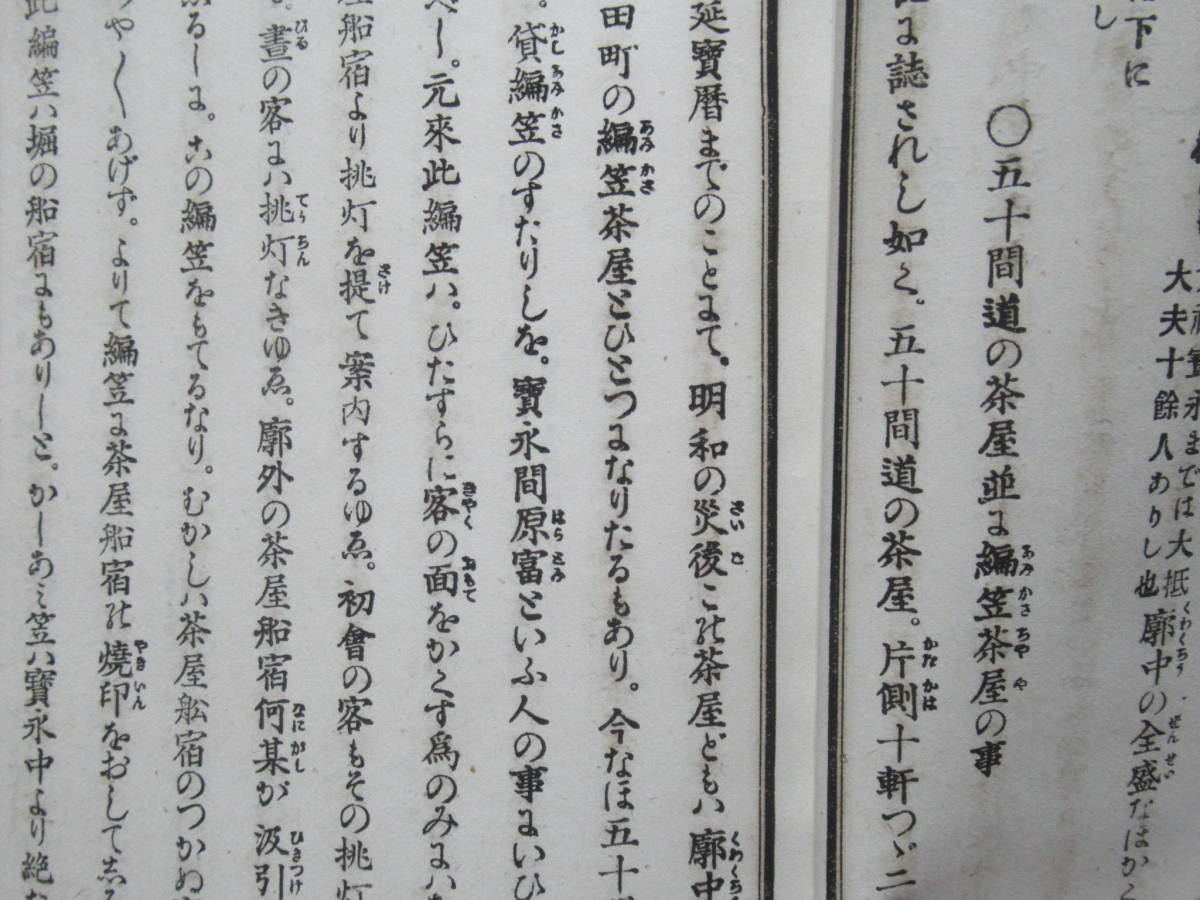 下に
し
大夫十餘人ありし也廓中の全盛なほか
までは大抵
〇五十間道の茶屋並に編笠茶屋の事
誌されし如く。五十間道の茶屋。片側十軒つゞ二
延寶暦までのことにて。明和の災後この茶屋どもハ廓中
田町の編笠茶屋とひとつになりたるもあり。今なほ五十
。貸編笠のすたりしを。寶永間原富といふ人の事にいひ
べし。元來此編笠ハ。ひたすらに客の面をかくす為のみにハ
船宿より挑灯を提て案内するゆゑ。初會の客もその挑灯
。晝の客にハ挑灯なきゆゑ。廓外の茶屋船宿何某が汲引
るしに。この編笠をもてるなり。むかしハ茶屋舩宿のつかぬ
や〳〵あげず。よりて編笠に茶屋船宿の燒印をおして
此編笠ハ堀の船宿にもありしと。かしあミ笠ハ寶永中より絶